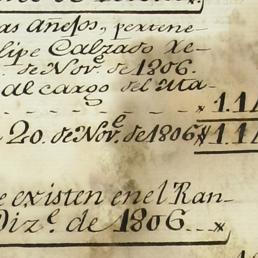 as anejos, pertene-
lipe Calzado Re-
. de Nov.e de 1806.
al cargo del Ma-
1.1
20. de Nov.e de 1806
1 1
e existen en el Ran-
Diz.e de 1806